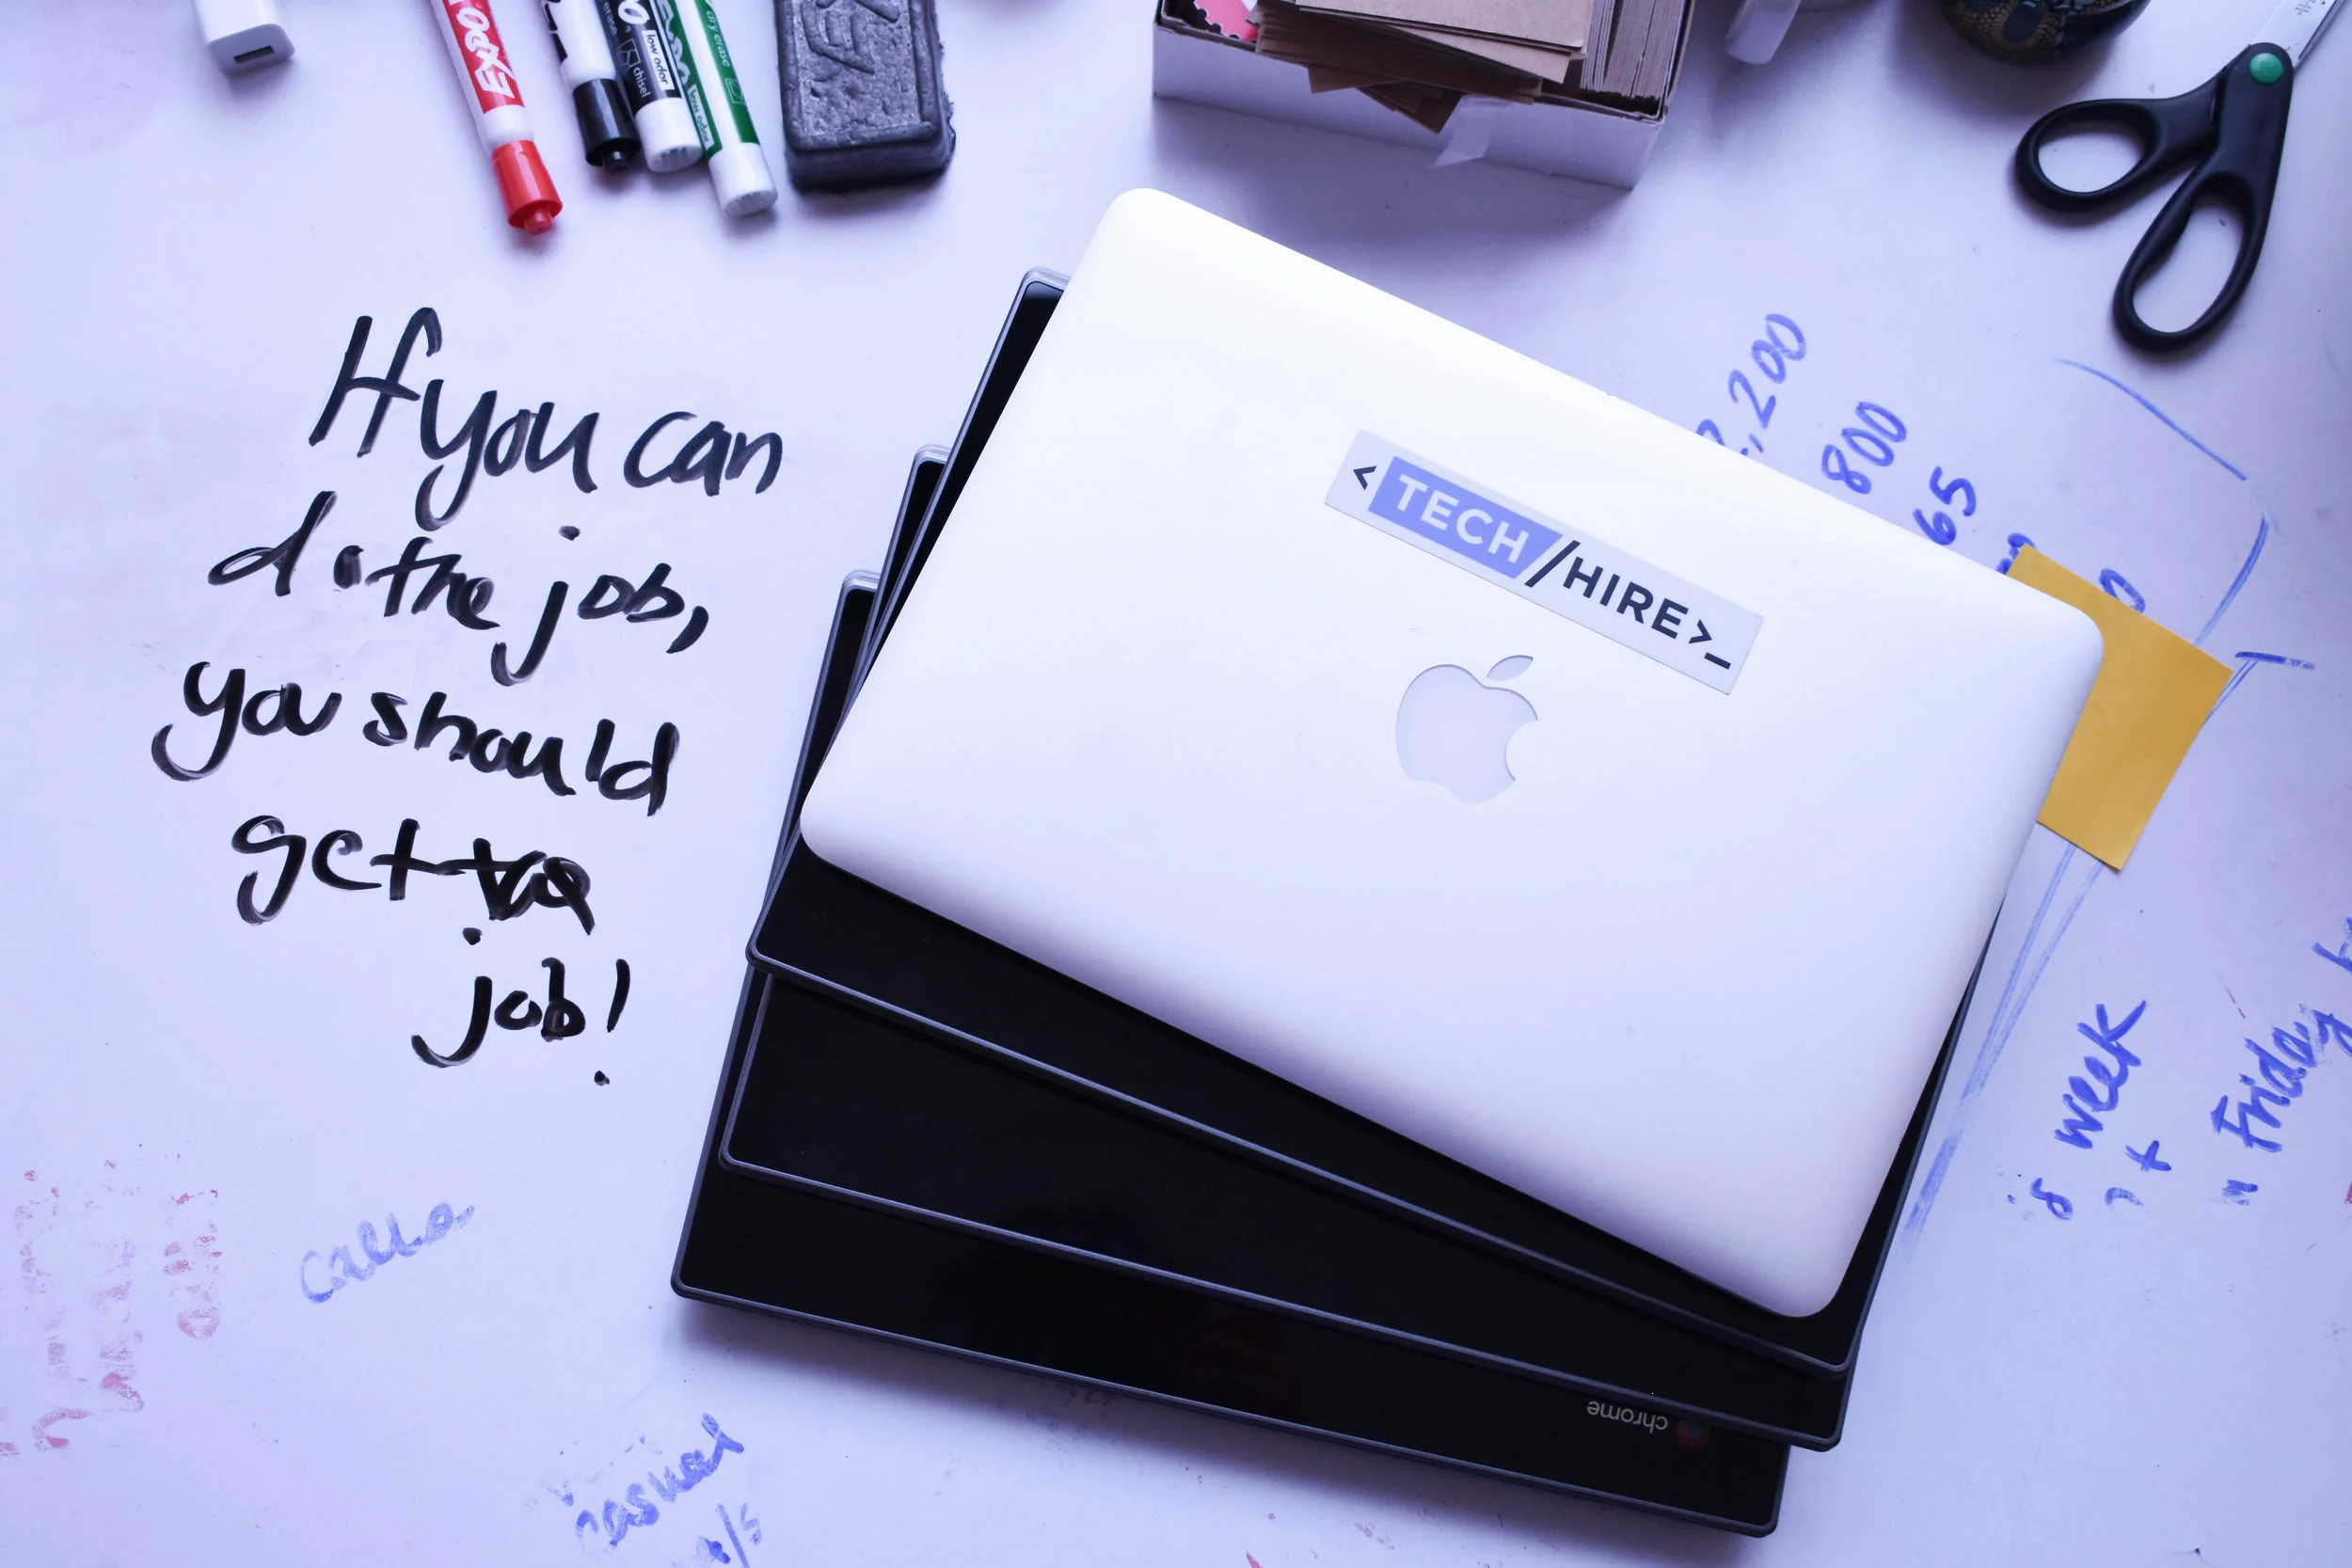 EXPO
low odor
chisel
dry erase
low odor
If you can
do the job,
you should
get the
job!
<TECH/HIRE>_
2,200
800
65
week
Friday
chrome
casual